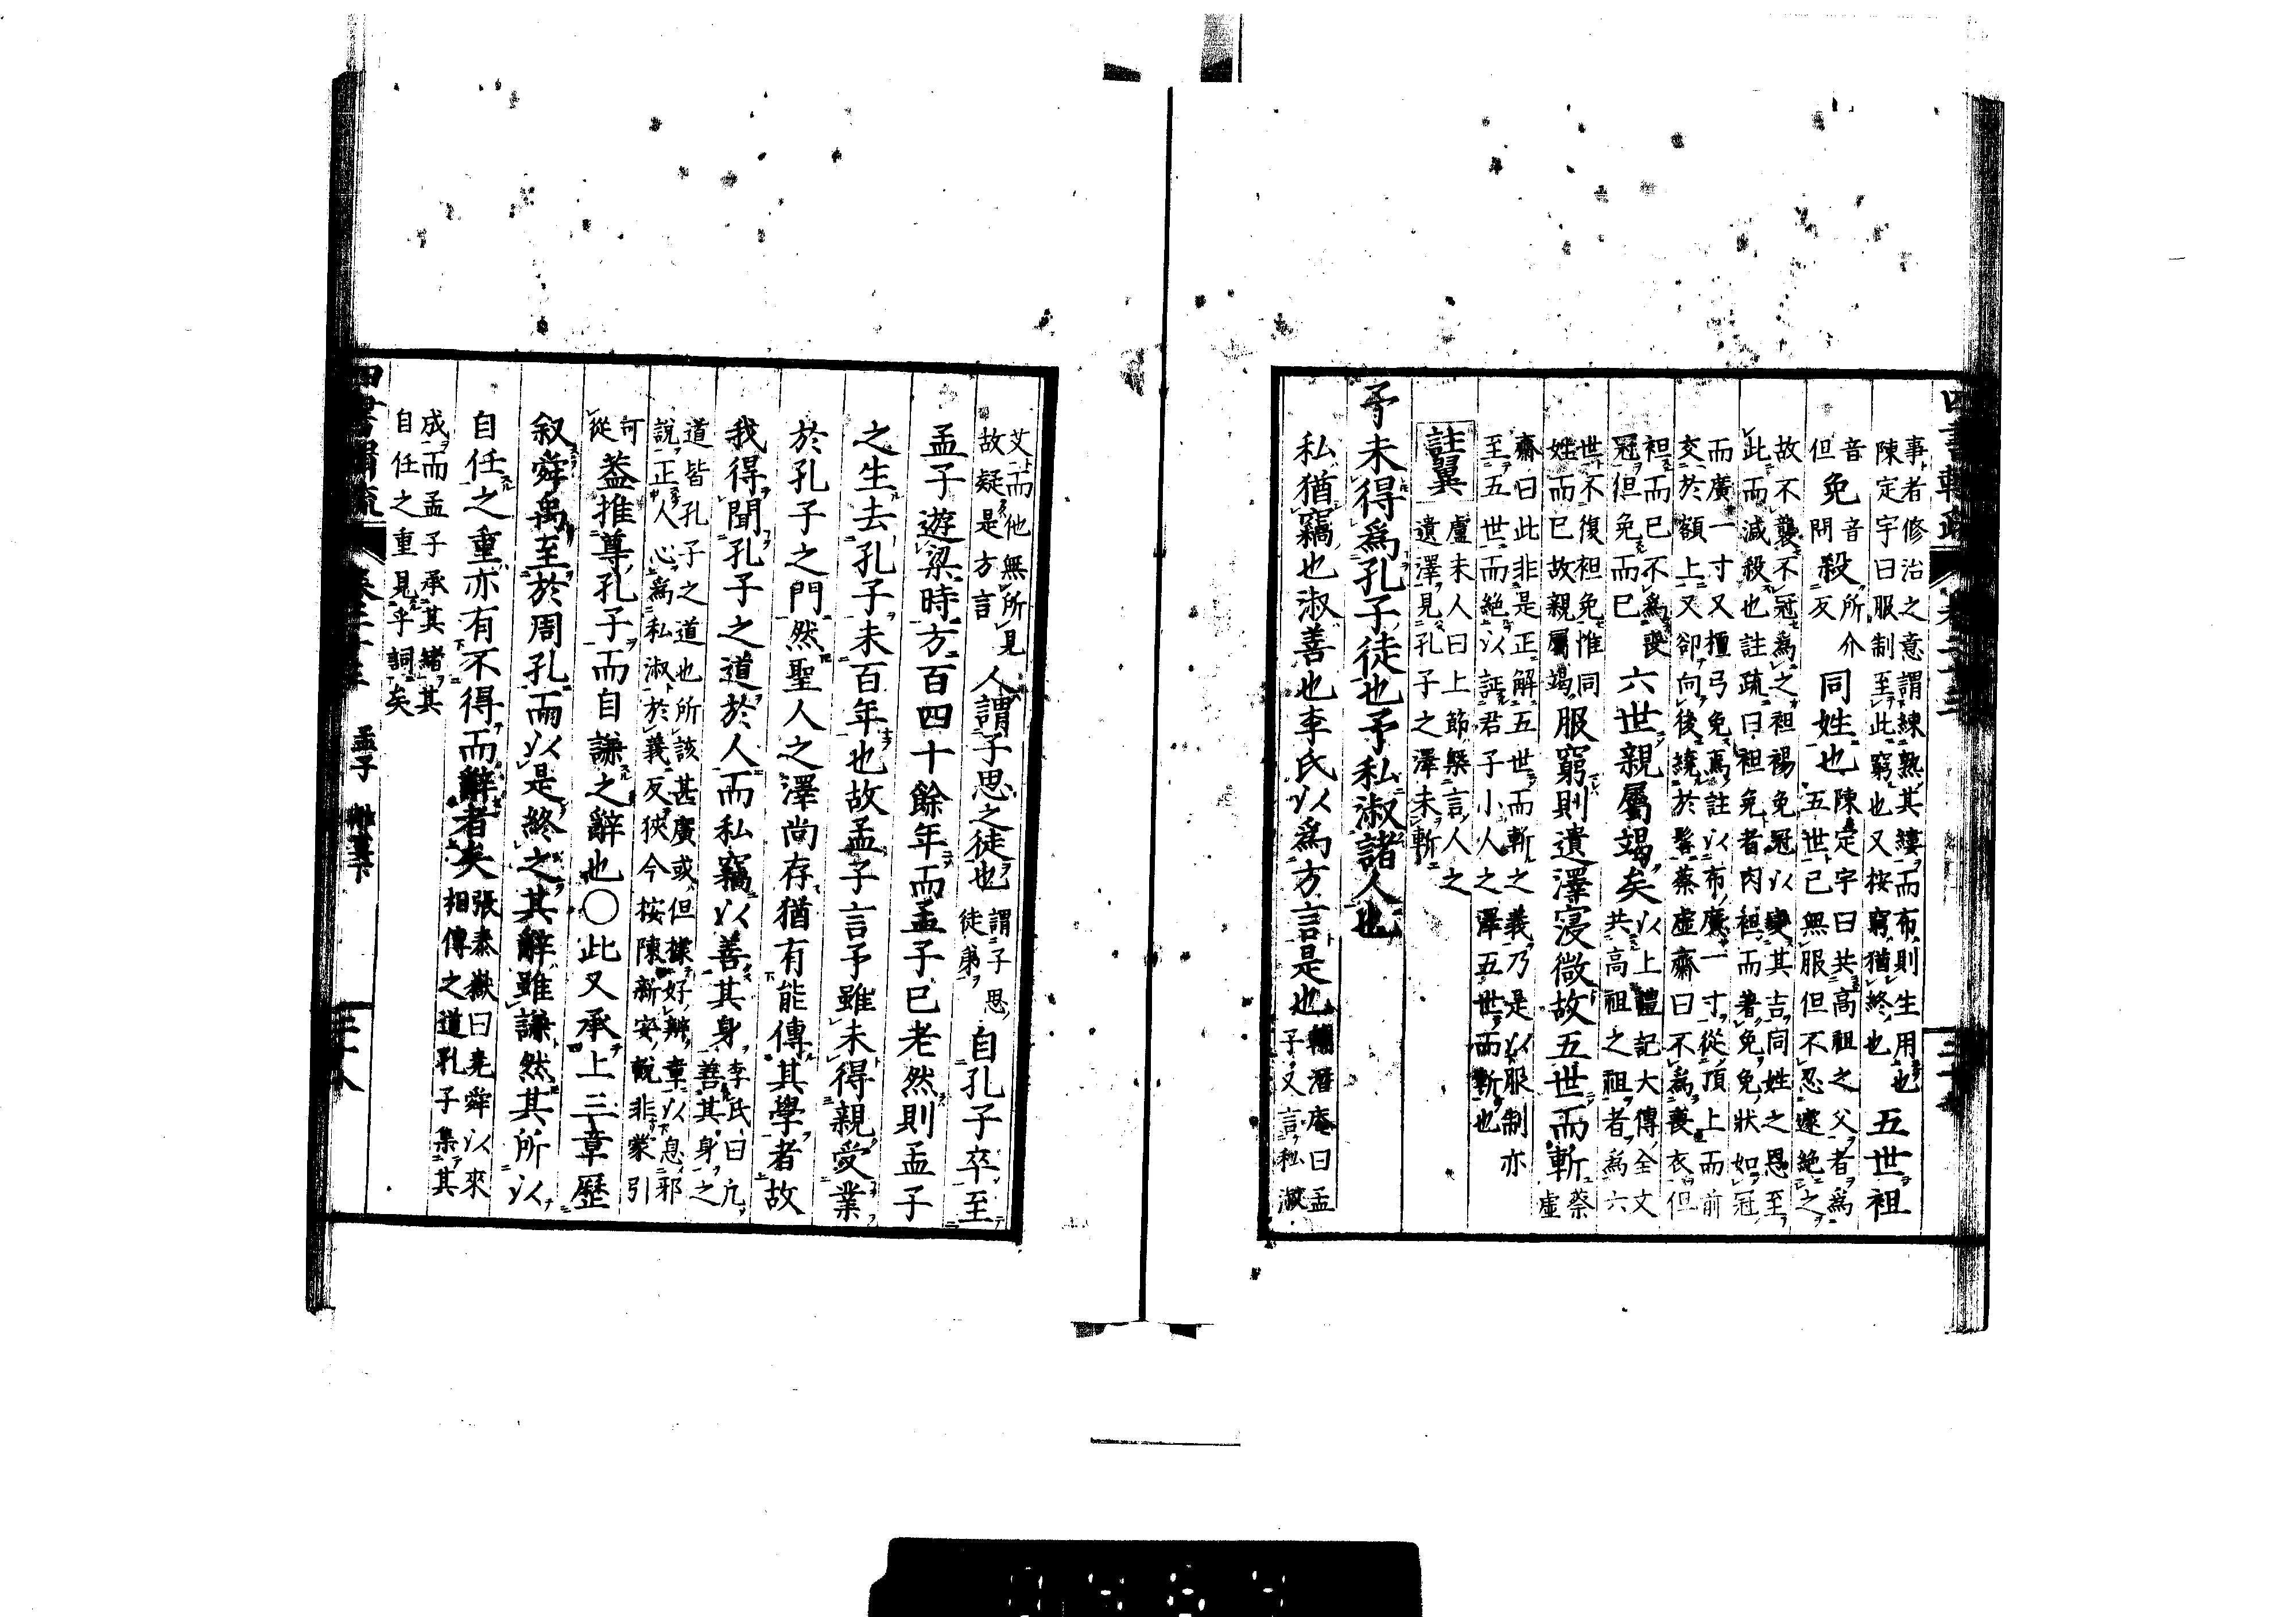 事者修治之意謂練熟其縷而布則生用也
陳定宇曰服制至此窮也又按窮猶終也
五世祖
音
但
免
音
問
殺
所介
反
同姓也
陳定宇曰共高祖之父者爲
五世已無服但不忍遽絕之
故不襲不冠爲之袒裼免冠以變其吉同姓之恩至
此而減殺也註疏曰袒免者肉袒而著免免狀如冠
而廣一寸又檀弓免焉註以布廣一寸從頂上而前
交於額上又卻向後繞於髻蔡虛齋曰不爲喪衣但
袒而已不爲喪
冠但免而已
六世親屬竭矣
以上禮記大傳全文
共高祖之祖者爲六
世不復袒免惟同
姓而已故親屬竭
服窮則遺澤寖微故五世而斬
蔡
虛
齋曰此非是正解五世而斬之義乃是以服制亦
至五世而絕以証君子小人之澤五世而斬也
註翼
盧未人曰上節槩言人之
遺澤見孔子之澤未斬
予未得爲孔子徒也予私淑諸人也
私猶竊也淑善也李氏以爲方言是也
輔潛庵曰孟
子又言私淑
艾而他無所見
故疑是方言
人謂子思之徒也
謂子思
徒弟
自孔子卒至
孟子遊梁時方百四十餘年而孟子已老然則孟子
之生去孔子未百年也故孟子言予雖未得親受業
於孔子之門然聖人之澤尚存猶有能傳其學者故
我得聞孔子之道於人而私竊以善其身
李氏曰亢
善其身之
道皆孔子之道也所該甚廣或但據好辨章以息邪
說正人心爲私淑於義反狹今按陳新安說非蒙引
可
從
葢推尊孔子而自謙之辭也○此又承上三章歷
叙舜禹至於周孔而以是終之其辭雖謙然其所以
自任之重亦有不得而辭者矣
張泰嶽曰堯舜以來
相傳之道孔子集其
成而孟子承其緒其
自任之重見乎詞矣
孟子